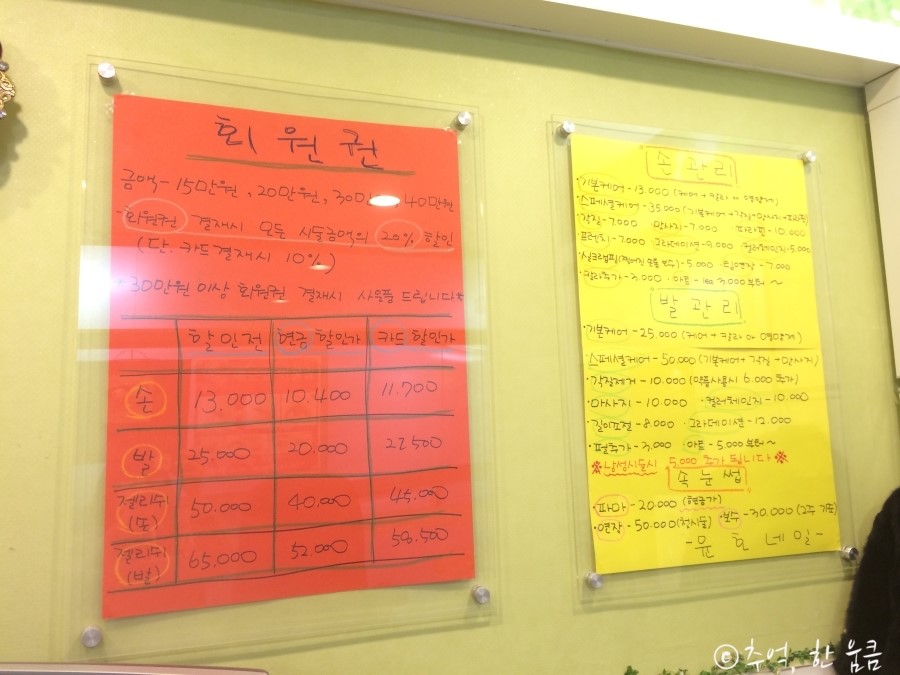 회원권
금액 - 15만원, 20만원, 30만, 40만원
·회원권 결재시 모든 시술금액의 20% 할인
(단. 카드결재시 10%)
* 30만원 이상 회원권 결재시 사은품 드립니다*
할인전 현금 할인가 카드 할인가
손 13,000 10,400 11,700
발 25,000 20,000 22,500
젤리쉬(손) 50,000 40,000 45,000
젤리쉬(발) 65,000 52,000 58,500
손 관리
·기본케어 - 13,000 (케어 + 칼라 or 영양제)
·스페셜케어 - 35,000 (기본케어+각질+맛사지+파라핀)
·각질 - 7,000 맛사지 - 7,000 파라핀 - 10,000
·프렌치 - 7,000 그라데이션 - 8,000 컬러체인지 - 5,000
·실크랩핑(찢어진 손톱 보수) - 5,000 ·팁연장 - 7,000
·칼라추가 - 3,000 ·아트 - 1ea 3,000부터 ~
발 관리
·기본케어 - 25,000 (케어 + 칼라 or 영양제)
·스페셜케어 - 50,000 (기본케어 + 각질 + 맛사지)
·각질제거 - 10,000 (약품사용시 6,000 추가)
·마사지 - 10,000 ·컬러체인지 - 10,000
·길이조절 - 8,000 ·그라데이션 - 12,000
·펄추가 - 3,000 아트 - 5,000부터 ~
※남성시술시 5,000 추가 됩니다※
속눈썹
·파마 - 20,000 (현금가)
·연장 - 50,000 (첫시술) ·보수 - 30,000 (2주 기준)
- 윤호네일 -
© 추억, 한 움큼